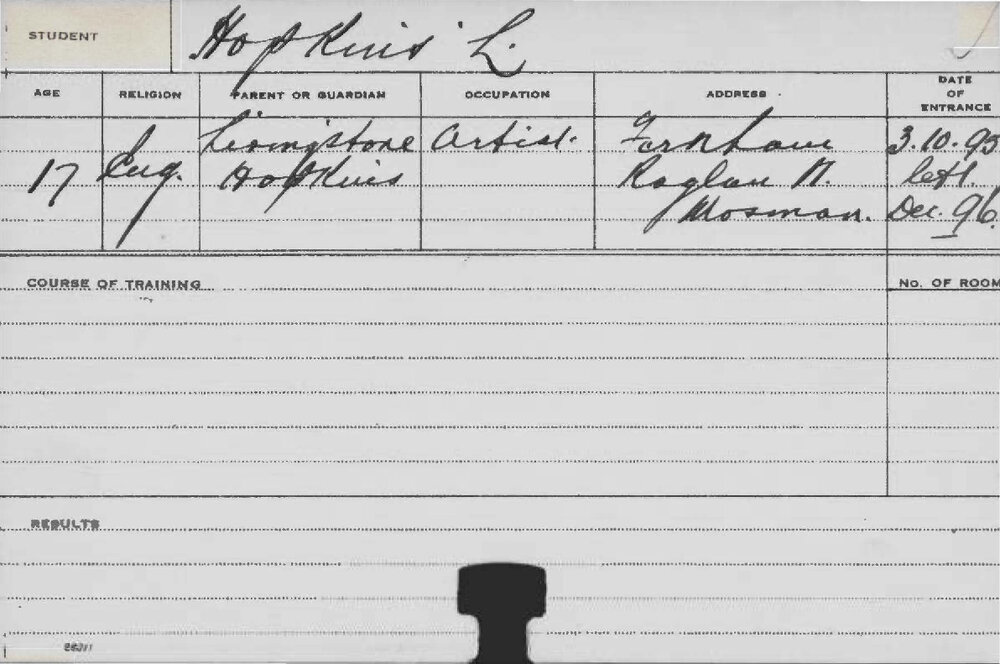 STUDENT
Hopkins L.
AGE RELIGION PARENT OR GUARDIAN OCCUPATION ADDRESS DATE OF ENTRANCE
Livingstone Artist. 3.10.95
17 Eng. Hopkins Raglan left.
Mosman. Dec. 96.
COURSE OF TRAINING No. OF ROOM
RESULTS